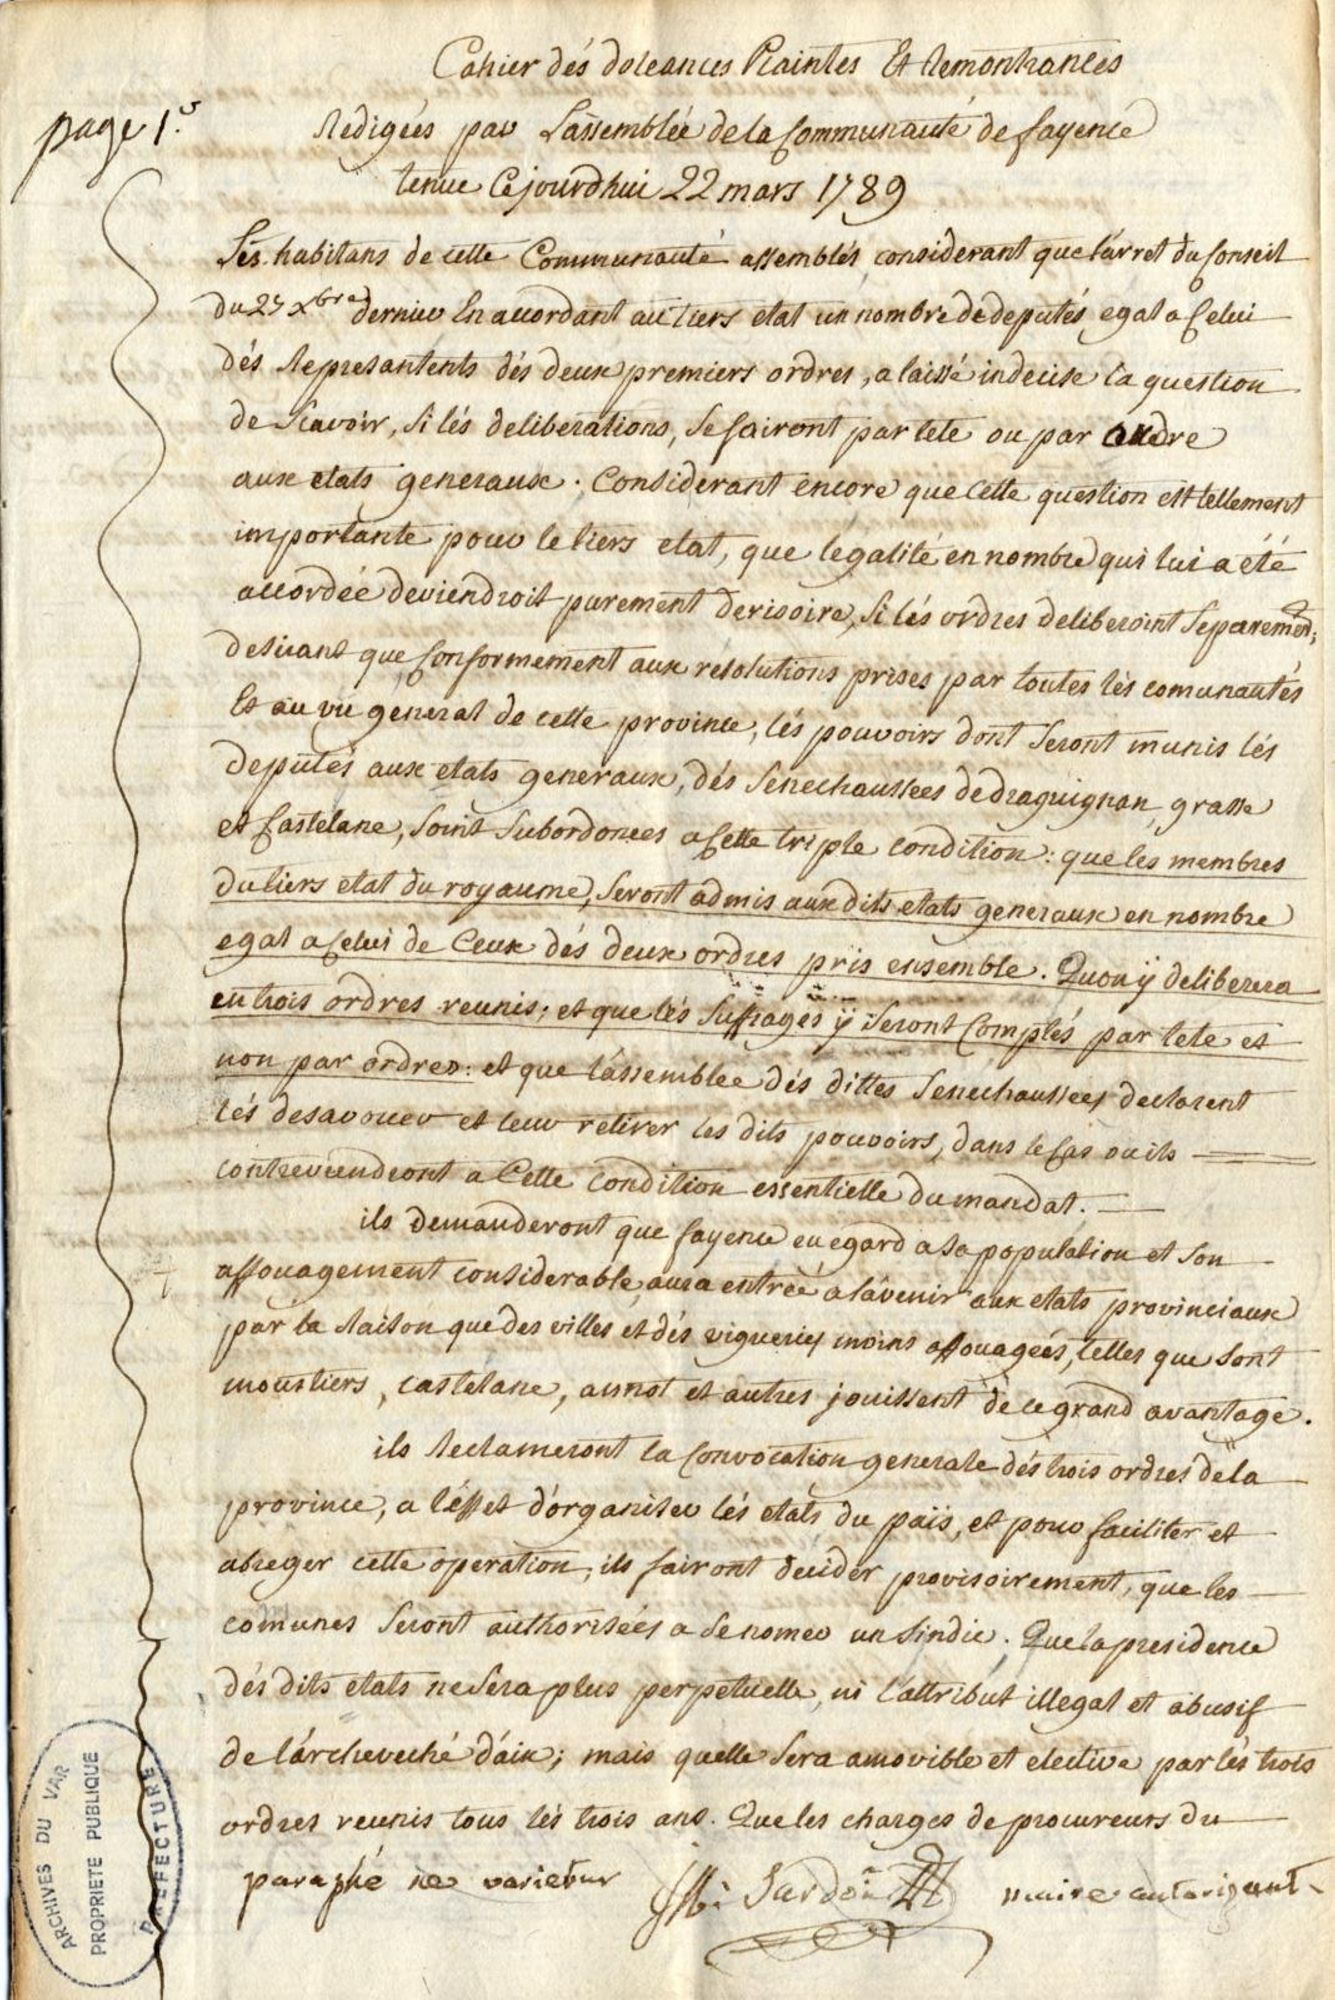 Cahier dés doleances Plaintes Et Remontrances
page 1.
Redigées par L'assemblée de la Communauté de fayence
tenue Cejourdhui 22 mars 1789
Les habitans de cette Communauté assemblés considerant que l'arret du Conseil
du 27 xbre dernier En accordant au tiers etat un nombre de deputés egal a Celui
dés Represantents dés deux premiers ordres, a laissé indecise la question
de Scavoir, Si lés deliberations, Se fairont par tete ou par ordre
aux etats generaux. Considerant encore que Cette question est tellement
importante pour le tiers etat, que l'egalité en nombre qui lui a été
accordée deviendroit purement derisoire, Si lés ordres deliberoint Separement,
desirant que Conformement aux résolutions prises par toutes lés comunautés
Et au vu géneral de cette province, lés pouvoirs dont Seront munis lés
deputés aux etats generaux, dés Senechaussees de draguignan, grasse
et Castelane, Soint Subordonées a Cette triple condition: que lés membres
du tiers etat du royaume, Seront admis aux dits etats generaux en nombre
egal a Celui de Ceux dés deux ordres pris ensemble. Quon ÿ deliberera
en trois ordres reunis; et que lés Suffrages ÿ Seront Comptés par tete et
non par ordres: et que l'assemblee dés dittes Senechaussees declarent
lés desavouer et leur retirer les dits pouvoirs, dans le Cas ou ils
contreviendront a Cette condition essentielle du mandat.
ils demanderont que fayence eu egard a Sa population et Son
affouagement considerable, aura entrée a l'avenir aux etats provinciaux
par la Raison que des villes et dés vigueries moins affouagées, telles que Sont
moustiers, castelane, annot et autres jouissent de ce grand avantage.
ils Reclameront la Convocation generale dés trois ordres de la
province, a l'éffet d'organiser lés etats du païs, et pour faciliter et
abreger cette operation, ils fairont decider provisoirement, que les
comunes Seront authorisées a Se nomer un Sindic. Que la presidence
dés dits etats ne Sera plus perpetuelle, ni l'attribut illegal et abusif
de l'archeveché d'aix; mais quelle Sera amovible et elective par lés trois
ordres reunis tous lés trois ans. Que les charges de procureurs du
paraphé ne varietur Sardou maire autorisant
ARCHIVES DU VAR
PROPRIETE PUBLIQUE
PREFECTURE